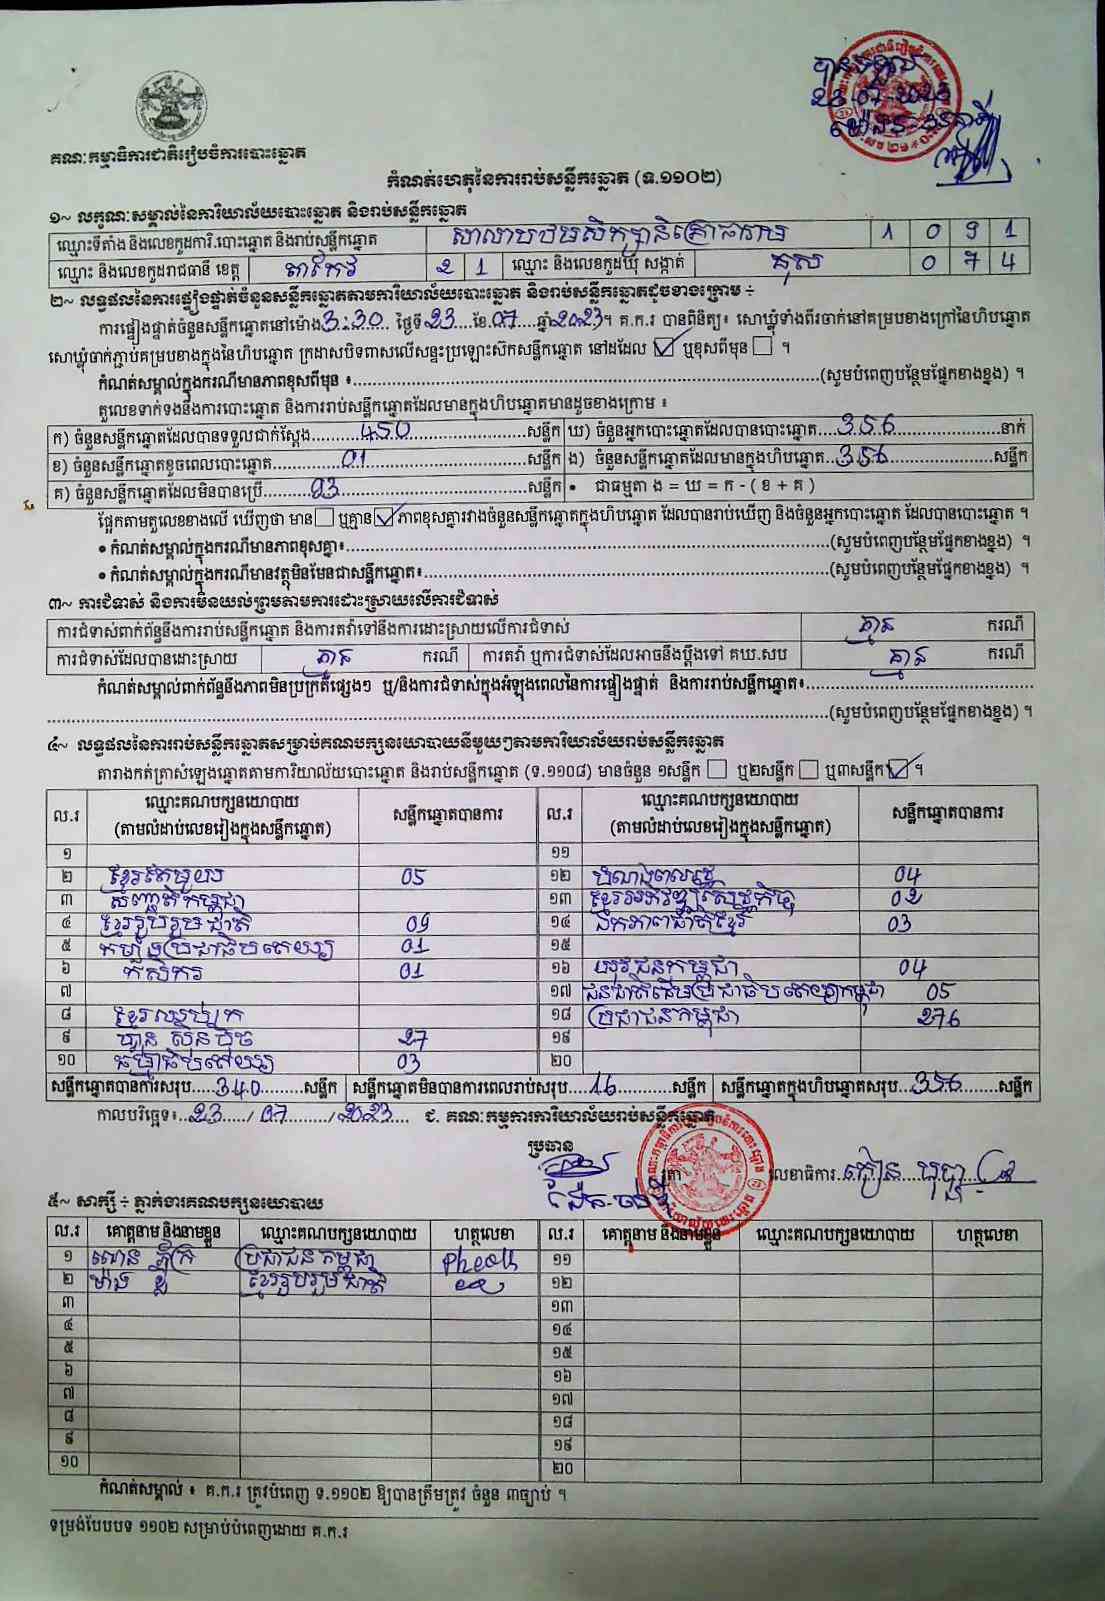 គណៈកម្មាធិការជាតិរៀបចំការបោះឆ្នោត
កំណត់ហេតុនៃការរាប់សន្លឹកឆ្នោត (ទ.១១០២)
១~ លក្ខណៈសម្គាល់នៃការិយាល័យបោះឆ្នោត និងរាប់សន្លឹកឆ្នោត
ឈ្មោះទីតាំង និងលេខកូដការិ.បោះឆ្នោត និងរាប់សន្លឹកឆ្នោត សាលាបឋមសិក្សានិគ្រោធារាម 1 0 9 1
ឈ្មោះ និងលេខកូដរាជធានី ខេត្ត តាកែវ 2 1 ឈ្មោះ និងលេខកូដឃុំ សង្កាត់ គុស 0 7 4
២~ លទ្ធផលនៃការផ្ទៀងផ្ទាត់ចំនួនសន្លឹកឆ្នោតតាមការិយាល័យបោះឆ្នោត និងរាប់សន្លឹកឆ្នោតដូចខាងក្រោម ÷
ការផ្ទៀងផ្ទាត់ចំនួនសន្លឹកឆ្នោតនៅម៉ោង 3:30 ថ្ងៃទី 23 ខែ 07 ឆ្នាំ 2023។ គ.ក.រ បានពិនិត្យ៖ សោឃ្លុំទាំងពីរចាក់នៅគម្របខាងក្រៅនៃហិបឆ្នោត
សោឃ្លុំចាក់ភ្ជាប់គម្របខាងក្នុងនៃហិបឆ្នោត ក្រដាសបិទពាសលើសន្ទះប្រឡោះស៊កសន្លឹកឆ្នោត នៅដដែល ☑ ឬខុសពីមុន ☐ ។
កំណត់សម្គាល់ក្នុងករណីមានភាពខុសពីមុន ៖ (សូមបំពេញបន្ថែមផ្នែកខាងខ្នង) ។
តួលេខទាក់ទងនឹងការបោះឆ្នោត និងការរាប់សន្លឹកឆ្នោតដែលមានក្នុងហិបឆ្នោតមានដូចខាងក្រោម ៖
ក) ចំនួនសន្លឹកឆ្នោតដែលបានទទួលជាក់ស្តែង 450 សន្លឹក ឃ) ចំនួនអ្នកបោះឆ្នោតដែលបានបោះឆ្នោត 356 នាក់
ខ) ចំនួនសន្លឹកឆ្នោតខូចពេលបោះឆ្នោត 01 សន្លឹក ង) ចំនួនសន្លឹកឆ្នោតដែលមានក្នុងហិបឆ្នោត 356 សន្លឹក
គ) ចំនួនសន្លឹកឆ្នោតដែលមិនបានប្រើ 93 សន្លឹក • ជាធម្មតា ង = ឃ = ក - ( ខ + គ )
ផ្អែកតាមតួលេខខាងលើ ឃើញថា មាន ☐ ឬគ្មាន ☑ ភាពខុសគ្នារវាងចំនួនសន្លឹកឆ្នោតក្នុងហិបឆ្នោត ដែលបានរាប់ឃើញ និងចំនួនអ្នកបោះឆ្នោត ដែលបានបោះឆ្នោត ។
• កំណត់សម្គាល់ក្នុងករណីមានភាពខុសគ្នា៖ (សូមបំពេញបន្ថែមផ្នែកខាងខ្នង) ។
• កំណត់សម្គាល់ក្នុងករណីមានវត្ថុមិនមែនជាសន្លឹកឆ្នោត៖ (សូមបំពេញបន្ថែមផ្នែកខាងខ្នង) ។
៣~ ការជំទាស់ និងការមិនយល់ព្រមតាមការដោះស្រាយលើការជំទាស់
ការជំទាស់ពាក់ព័ន្ធនឹងការរាប់សន្លឹកឆ្នោត និងការតវ៉ាទៅនឹងការដោះស្រាយលើការជំទាស់ គ្មាន ករណី
ការជំទាស់ដែលបានដោះស្រាយ គ្មាន ករណី ការតវ៉ា ឬការជំទាស់ដែលអាចនឹងប្តឹងទៅ គឃ.សប គ្មាន ករណី
កំណត់សម្គាល់ពាក់ព័ន្ធនឹងភាពមិនប្រក្រតីផ្សេងៗ ឬ/និងការជំទាស់ក្នុងអំឡុងពេលនៃការផ្ទៀងផ្ទាត់ និងការរាប់សន្លឹកឆ្នោត៖
(សូមបំពេញបន្ថែមផ្នែកខាងខ្នង) ។
៤~ លទ្ធផលនៃការរាប់សន្លឹកឆ្នោតសម្រាប់គណបក្សនយោបាយនីមួយៗតាមការិយាល័យរាប់សន្លឹកឆ្នោត
តារាងកត់ត្រាសំឡេងឆ្នោតតាមការិយាល័យបោះឆ្នោត និងរាប់សន្លឹកឆ្នោត (ទ.១១០៨) មានចំនួន ១សន្លឹក ☐ ឬ២សន្លឹក ☐ ឬ៣សន្លឹក ☑ ។
ល.រ ឈ្មោះគណបក្សនយោបាយ (តាមលំដាប់លេខរៀងក្នុងសន្លឹកឆ្នោត) សន្លឹកឆ្នោតបានការ ល.រ ឈ្មោះគណបក្សនយោបាយ (តាមលំដាប់លេខរៀងក្នុងសន្លឹកឆ្នោត) សន្លឹកឆ្នោតបានការ
១ ១១
២ ខ្មែរតែមួយ 05 ១២ សំបុកឃ្មុំ 04
៣ សញ្ជាតិកម្ពុជា ១៣ ខ្មែរអភិវឌ្ឍសេដ្ឋកិច្ច 02
៤ ខ្មែររួបរួមជាតិ 09 ១៤ ឯកភាពជាតិខ្មែរ 03
៥ កម្លាំងប្រជាធិបតេយ្យ 01 ១៥
៦ កសិករ 01 ១៦ យុវជនកម្ពុជា 04
៧ ១៧ ជនជាតិដើមប្រជាធិបតេយ្យកម្ពុជា 05
៨ ខ្មែរឈប់ក្រ ១៨ ប្រជាជនកម្ពុជា 276
៩ ហ្វ៊ុនស៊ិនប៉ិច 27 ១៩
១០ ធម្មាធិបតេយ្យ 03 ២០
សន្លឹកឆ្នោតបានការសរុប 340 សន្លឹក សន្លឹកឆ្នោតមិនបានការពេលរាប់សរុប 16 សន្លឹក សន្លឹកឆ្នោតក្នុងហិបឆ្នោតសរុប 356 សន្លឹក
កាលបរិច្ឆេទ៖ 23 / 07 / 2023 ជ. គណៈកម្មការការិយាល័យរាប់សន្លឹកឆ្នោត
ប្រធាន
លេខាធិការ
៥~ សាក្សី ÷ ភ្នាក់ងារគណបក្សនយោបាយ
ល.រ គោត្តនាម និងនាមខ្លួន ឈ្មោះគណបក្សនយោបាយ ហត្ថលេខា ល.រ គោត្តនាម និងនាមខ្លួន ឈ្មោះគណបក្សនយោបាយ ហត្ថលេខា
១ ប្រជាជនកម្ពុជា ១១
២ ខ្មែររួបរួមជាតិ ១២
៣ ១៣
៤ ១៤
៥ ១៥
៦ ១៦
៧ ១៧
៨ ១៨
៩ ១៩
១០ ២០
កំណត់សម្គាល់ ៖ គ.ក.រ ត្រូវបំពេញ ទ.១១០២ ឱ្យបានត្រឹមត្រូវ ចំនួន ៣ច្បាប់ ។
ទម្រង់បែបបទ ១១០២ សម្រាប់បំពេញដោយ គ.ក.រ